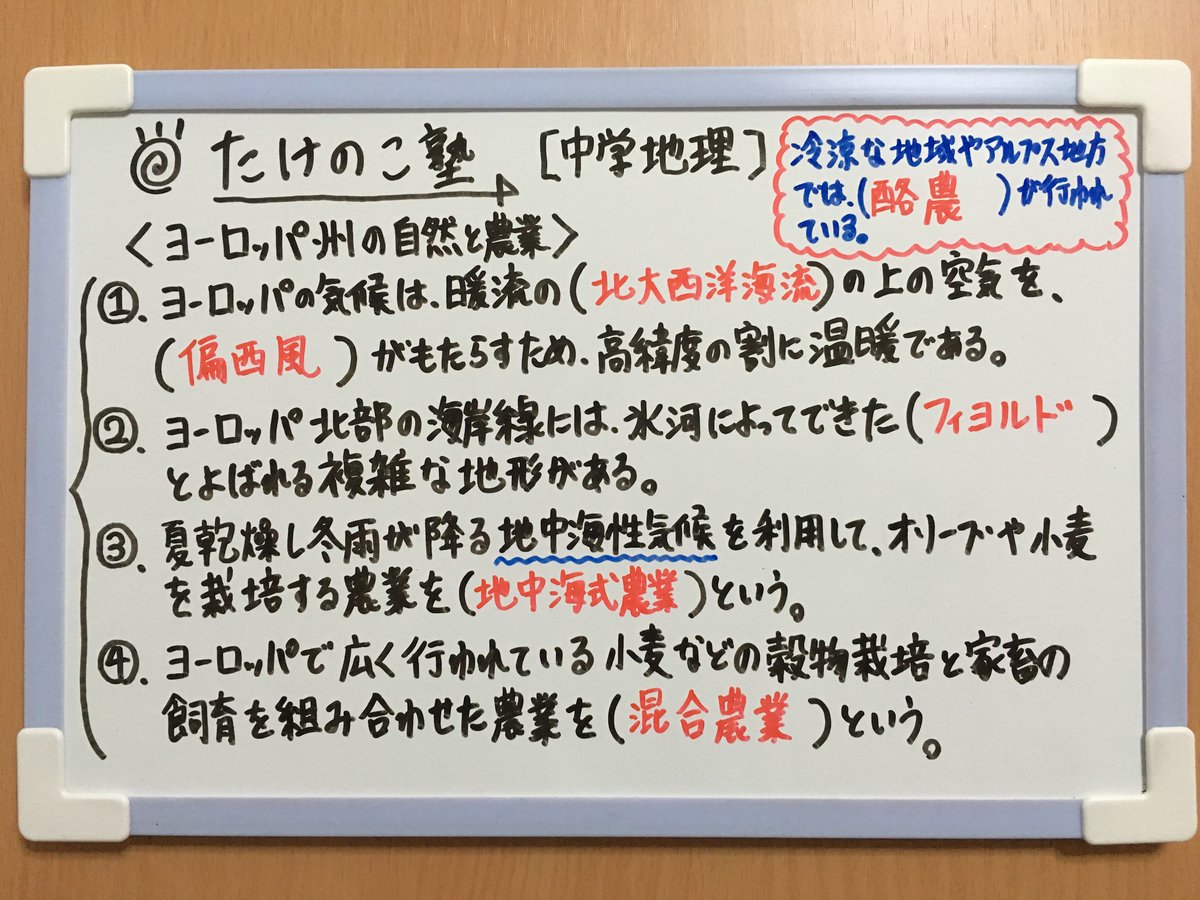 たけのこ塾 [中学地理]
冷涼な地域やアルプス地方
では、(酪農)が行われ
ている。
〈ヨーロッパ州の自然と農業〉
①、ヨーロッパの気候は、暖流の(北大西洋海流)の上の空気を、
(偏西風)がもたらすため、高緯度の割に温暖である。
②、ヨーロッパ北部の海岸線には、氷河によってできた(フィヨルド)
とよばれる複雑な地形がある。
③、夏乾燥し冬雨が降る地中海性気候を利用して、オリーブや小麦
を栽培する農業を(地中海式農業)という。
④、ヨーロッパで広く行われている小麦などの穀物栽培と家畜の
飼育を組み合わせた農業を(混合農業)という。